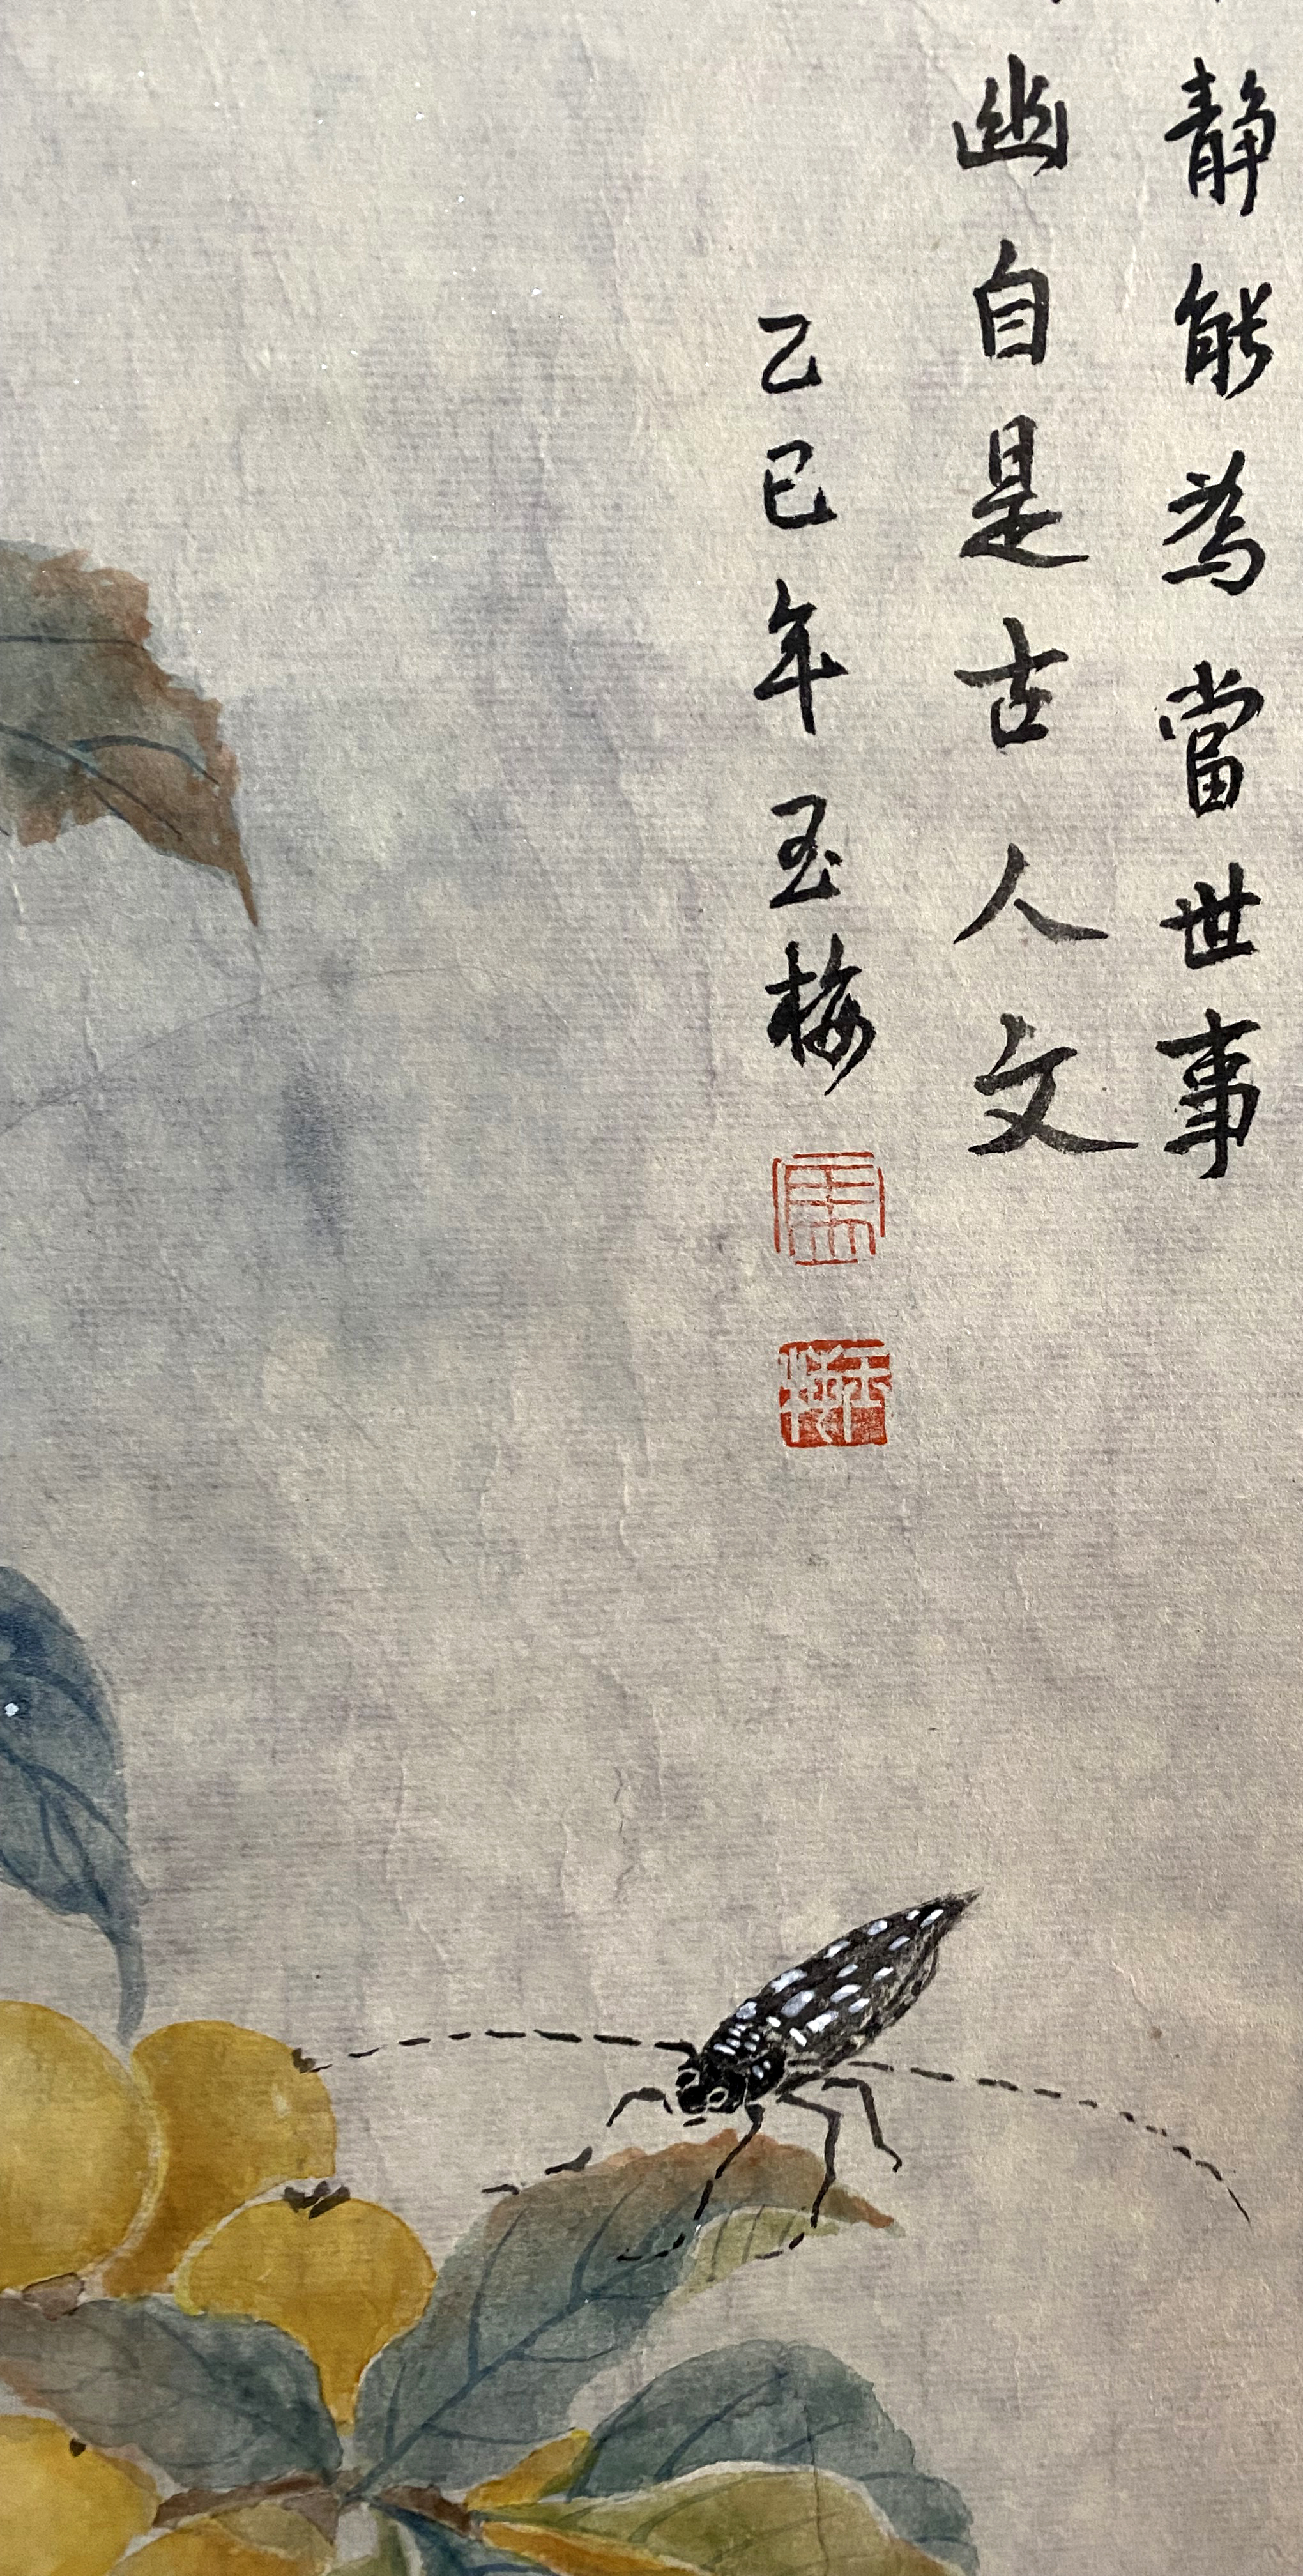 靜能爲當世事
幽自是古人文
乙巳年玉梅